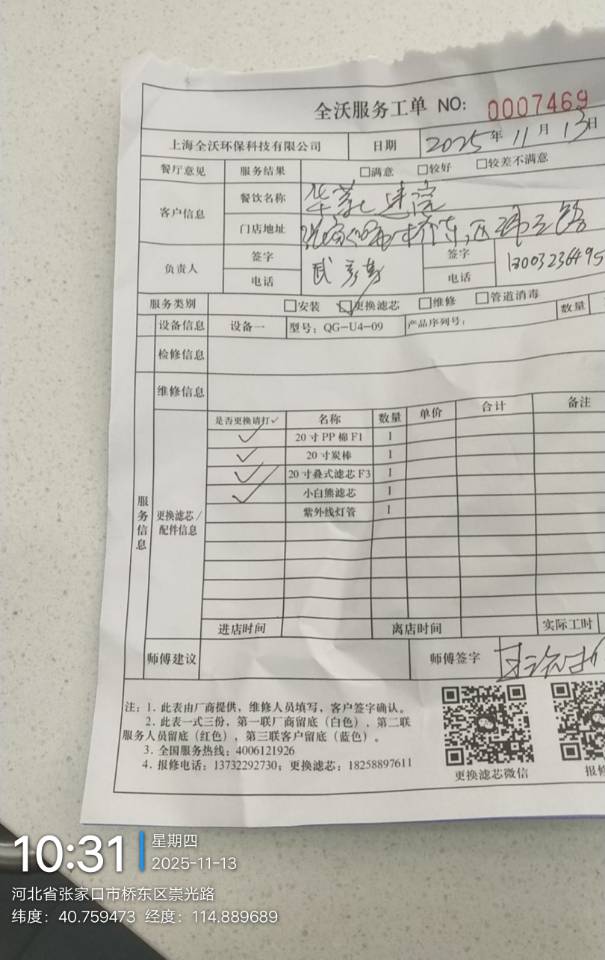 全沃服务工单 NO: 0007469
上海全沃环保科技有限公司 日期 2025年11月13日
餐厅意见 服务结果 □满意 □较好 □较差不满意
客户信息 餐饮名称 华莱士
门店地址 张家口市桥东区
负责人 签字 武 签字
电话 电话
服务类别 □安装 ☑更换滤芯 □维修 □管道消毒
设备信息 设备一 型号: QG-U4-09 产品序列号: 数量
检修信息
维修信息
服务信息 更换滤芯/配件信息
是否更换请打✓ 名称 数量 单价 合计 备注
✓ 20寸PP棉F1 1
✓ 20寸炭棒 1
✓ 20寸叠式滤芯F3 1
✓ 小白熊滤芯 1
紫外线灯管 1
进店时间 离店时间 实际工时
师傅建议 师傅签字
注: 1. 此表由厂商提供, 维修人员填写, 客户签字确认。
2. 此表一式三份, 第一联厂商留底(白色), 第二联
服务人员留底(红色), 第三联客户留底(蓝色)。
3. 全国服务热线: 4006121926
4. 报修电话: 13732292730; 更换滤芯: 18258897611
更换滤芯微信 报修
10:31 星期四
2025-11-13
河北省张家口市桥东区崇光路
纬度: 40.759473 经度: 114.889689